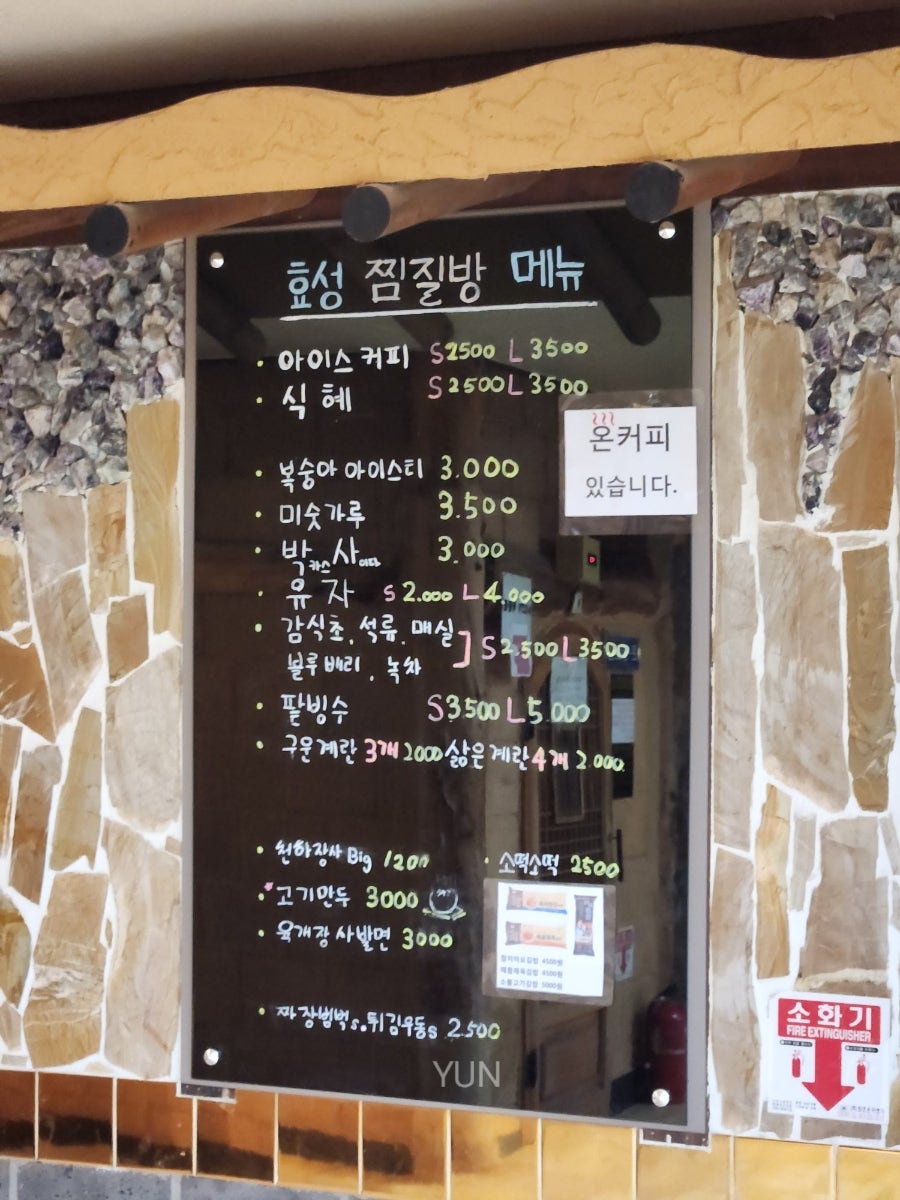 효성 찜질방 메뉴
· 아이스커피 S2500 L3500
· 식혜 S2500 L3500
온커피
있습니다.
· 복숭아 아이스티 3.000
· 미숫가루 3.500
· 박카스사이다 3.000
· 유자 S2.000 L4.000
· 감식초, 석류, 매실
블루베리, 녹차 ] S2.500 L3500
· 팥빙수 S3.500 L5.000
· 구운계란 3개 2000 삶은계란 4개 2.000
· 천하장사 Big 1200
· 소떡소떡 2500
· 고기만두 3000
· 육개장 사발면 3000
참치마요김밥 4500원
매콤제육김밥 4500원
소불고기김밥 5000원
· 짜장범벅s. 튀김우동s 2.500
YUN
소화기
FIRE EXTINGUISHER